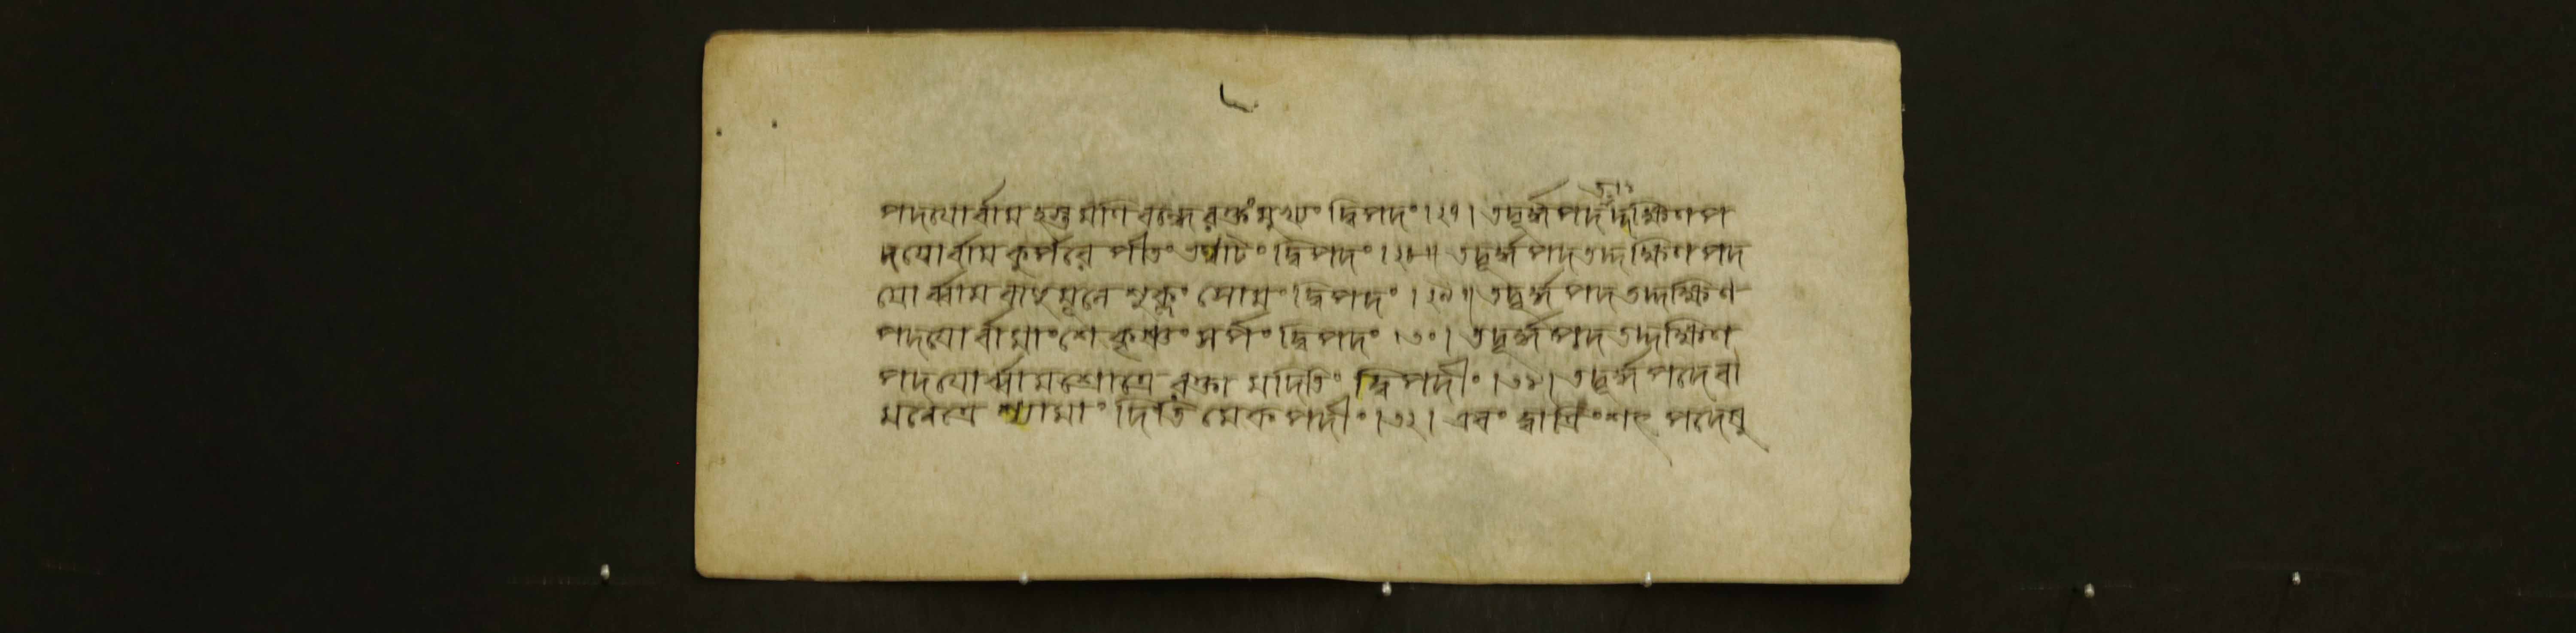 পদযোর্বাম হস্ত মণিবন্ধে রক্তং মুখ্যং দ্বিপদং ।২৭। তদূর্দ্ধপদ তদ্দক্ষিণপ
দযোর্বাম কুর্পরে পীতং ভল্লাটং দ্বিপদং ।২৮॥ তদূর্দ্ধপদতদ্দক্ষিণপদ
যোর্ব্বামবাহুমূলে শুক্লং সোমং দ্বিপদং ।২৯॥ তদূর্দ্ধপদ তদ্দক্ষিণ
পদযোর্বামাংশে কৃষ্ণং সর্পং দ্বিপদং ।৩০। তদূর্দ্ধপদ তদ্দক্ষিণ
পদযোর্ব্বামশ্রোত্রে রক্তা মদিতিং দ্বিপদীং ।৩১। তদূর্দ্ধপদে বা
মনেত্রে শ্যামাং দিতিমেকপদীং ।৩২। এবং দ্বাত্রিংশৎ পদেষু